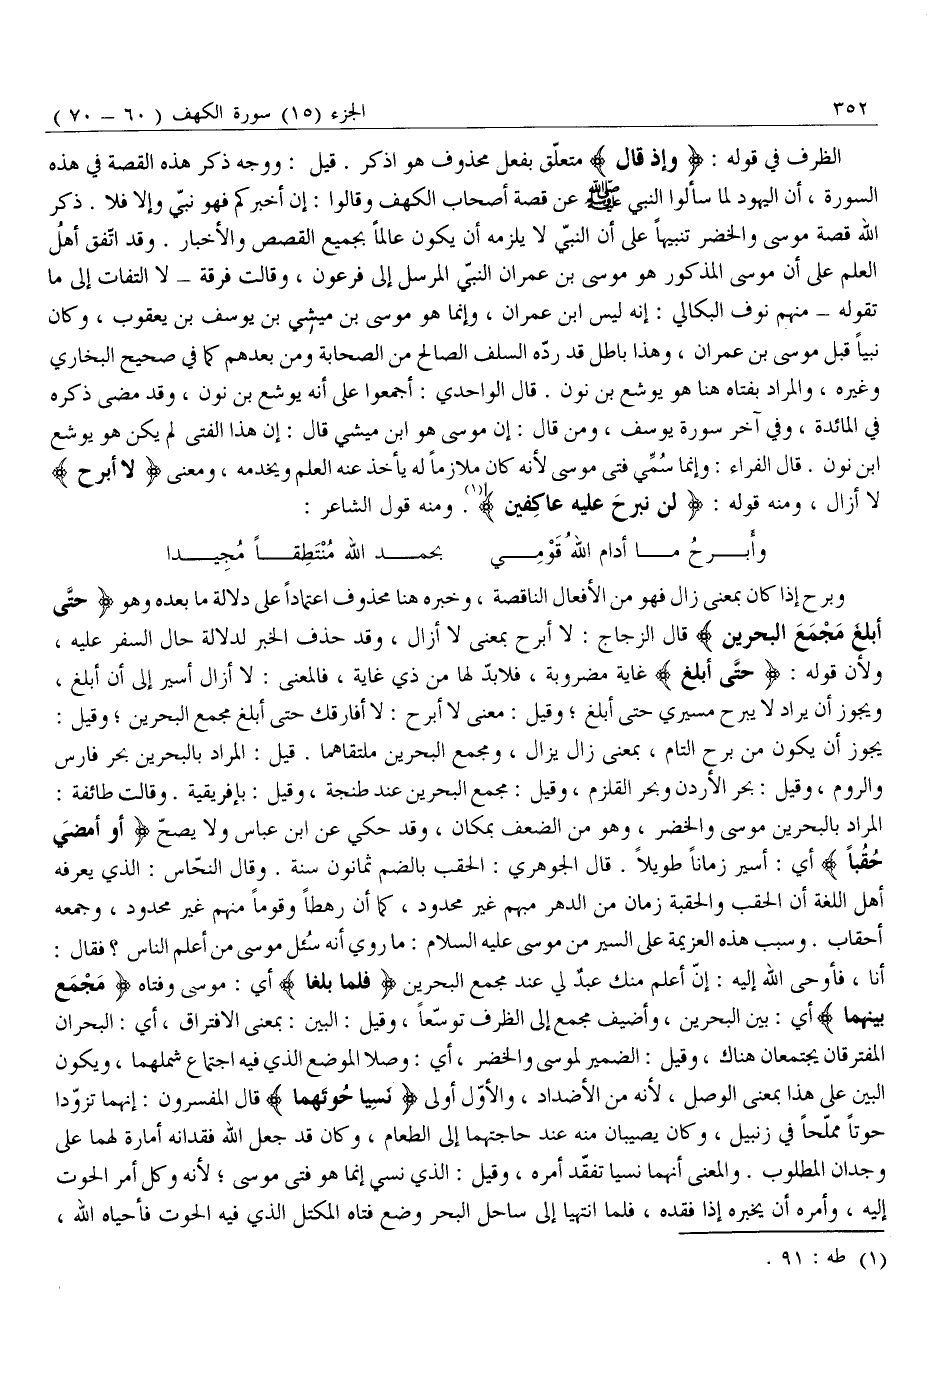 ٣٥٢ الجزء (١٥) سورة الكهف ( ٦٠ – ٧٠ )
الظرف في قوله : ﴿ وإذ قال ﴾ متعلّق بفعل محذوف هو اذكر . قيل : ووجه ذكر هذه القصة في هذه
السورة ، أن اليهود لما سألوا النبي ﷺ عن قصة أصحاب الكهف وقالوا : إن أخبركم فهو نبيّ وإلا فلا . ذكر
الله قصة موسى والخضر تنبيهاً على أن النبيّ لا يلزمه أن يكون عالماً بجميع القصص والأخبار . وقد اتّفق أهلُ
العلم على أن موسى المذكور هو موسى بن عمران النبيّ المرسل إلى فرعون ، وقالت فرقة – لا التفات إلى ما
تقوله – منهم نوف البكالي : إنه ليس ابن عمران ، وإنما هو موسى بن ميشي بن يوسف بن يعقوب ، وكان
نبياً قبل موسى بن عمران ، وهذا باطل قد ردّه السلف الصالح من الصحابة ومن بعدهم كما في صحيح البخاري
وغيره ، والمراد بفتاه هنا هو يوشع بن نون . قال الواحدي : أجمعوا على أنه يوشع بن نون ، وقد مضى ذكره
في المائدة ، وفي آخر سورة يوسف ، ومن قال : إن موسى هو ابن ميشي قال : إن هذا الفتى لم يكن هو يوشع
ابن نون . قال الفراء : وإنما سُمّي فتى موسى لأنه كان ملازماً له يأخذ عنه العلم ويخدمه ، ومعنى ﴿ لا أبرح ﴾
لا أزال ، ومنه قوله : ﴿ لن نبرحَ عليه عاكِفين ﴾(١) . ومنه قول الشاعر :
وأبـرحُ مـا أدام اللهُ قَوْمِـي بحمـد الله مُنْتَطِقـاً مُجِيـدا
وبرح إذا كان بمعنى زال فهو من الأفعال الناقصة ، وخبره هنا محذوف اعتماداً على دلالة ما بعده وهو ﴿ حتَّى
أبلغَ مَجْمَعَ البحرين ﴾ قال الزجاج : لا أبرح بمعنى لا أزال ، وقد حذف الخبر لدلالة حال السفر عليه ،
ولأن قوله : ﴿ حتَّى أبلغ ﴾ غاية مضروبة ، فلابدّ لها من ذي غاية ، فالمعنى : لا أزال أسير إلى أن أبلغ ،
ويجوز أن يراد لا يبرح مسيري حتى أبلغ ؛ وقيل : معنى لا أبرح : لا أفارقك حتى أبلغ مجمع البحرين ؛ وقيل :
يجوز أن يكون من برح التام ، بمعنى زال يزال ، ومجمع البحرين ملتقاهما . قيل : المراد بالبحرين بحر فارس
والروم ، وقيل : بحر الأردن وبحر القلزم ، وقيل : مجمع البحرين عند طنجة ، وقيل : بإفريقية . وقالت طائفة :
المراد بالبحرين موسى والخضر ، وهو من الضعف بمكان ، وقد حكي عن ابن عباس ولا يصحّ ﴿ أو أمضيَ
حُقُباً ﴾ أي : أسير زماناً طويلاً . قال الجوهري : الحقب بالضم ثمانون سنة . وقال النحّاس : الذي يعرفه
أهل اللغة أن الحقب والحقبة زمان من الدهر مبهم غير محدود ، كما أن رهطاً وقوماً منهم غير محدود ، وجمعه
أحقاب . وسبب هذه العزيمة على السير من موسى عليه السلام : ما روي أنه سُئل موسى من أعلم الناس ؟ فقال :
أنا ، فأوحى الله إليه : إنّ أعلم منك عبدٌ لي عند مجمع البحرين ﴿ فلما بلغا ﴾ أي : موسى وفتاه ﴿ مَجْمَع
بينهما ﴾ أي : بين البحرين ، وأضيف مجمع إلى الظرف توسّعاً ، وقيل : البين : بمعنى الافتراق ، أي : البحران
المفترقان يجتمعان هناك ، وقيل : الضمير لموسى والخضر ، أي : وصلا الموضع الذي فيه اجتماع شملهما ، ويكون
البين على هذا بمعنى الوصل ، لأنه من الأضداد ، والأوّل أولى ﴿ نَسِيا حُوتَهما ﴾ قال المفسرون : إنهما تزوّدا
حوتاً مملّحاً في زنبيل ، وكان يصيبان منه عند حاجتهما إلى الطعام ، وكان قد جعل الله فقدانه أمارة لهما على
وجدان المطلوب . والمعنى أنهما نسيا تفقّد أمره ، وقيل : الذي نسي إنما هو فتى موسى ؛ لأنه وكل أمر الحوت
إليه ، وأمره أن يخبره إذا فقده ، فلما انتهيا إلى ساحل البحر وضع فتاه المكتل الذي فيه الحوت فأحياه الله ،
(١) طه : ٩١ .